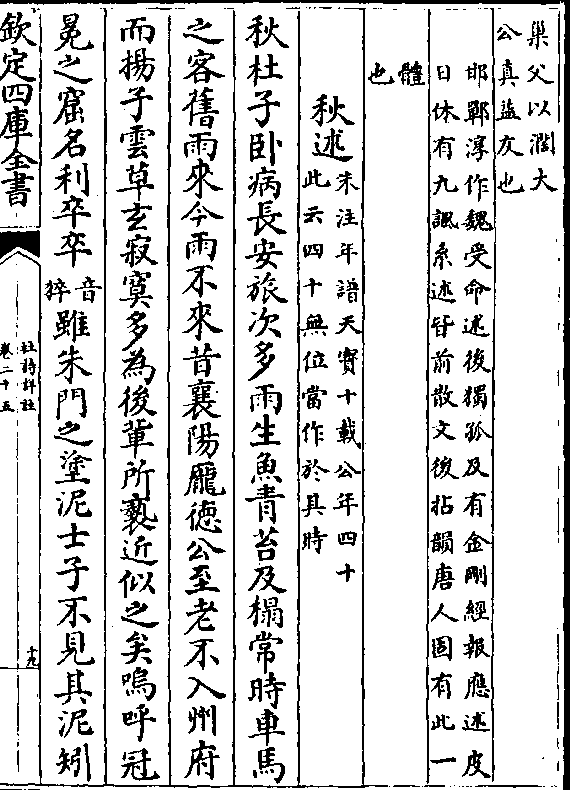 巢父以潤大
公真益友也
邯鄲淳作魏受命述後獨孤及有金剛經報應述皮
日休有九諷系述皆前散文後拈韻唐人固有此一
體
也
秋述
朱注年譜天寶十載公年四十
此云四十無位當作於其時
秋杜子卧病長安旅次多雨生魚青苔及榻常時車馬
之客舊雨來今雨不來昔襄陽龐德公至老不入州府
而揚子雲草玄寂寞多為後輩所褻近似之矣嗚呼冠
冕之窟名利卒卒
音
猝
雖朱門之塗泥士子不見其泥矧
欽定四庫全書
杜詩詳註
卷二十五
十九